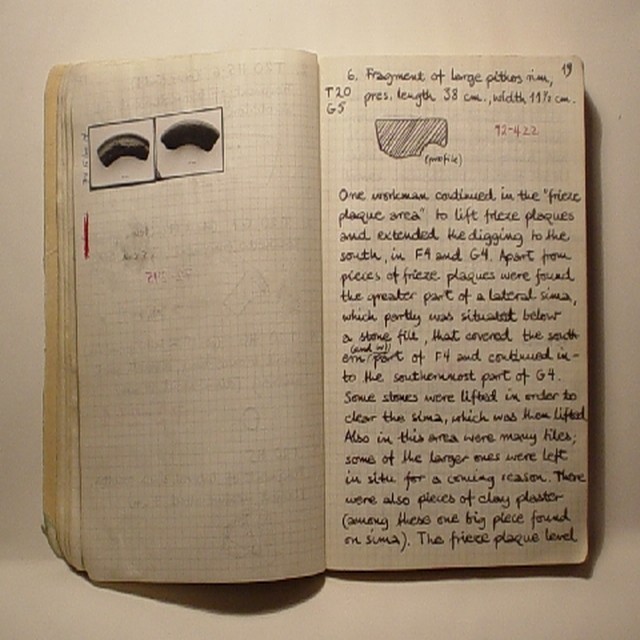 19
6. Fragment of large pithos rim,
T20 pres. length 38 cm., width 11½ cm.
G5
92-422
(profile)
One workman continued in the "frieze
plaque area" to lift frieze plaques
and extended the digging to the
south, in F4 and G4. Apart from
pieces of frieze plaques were found
the greater part of a lateral sima,
which partly was situated below
a stone fill, that covered the south
(and w)
ern part of F4 and continued in-
to the southernmost part of G4.
Some stones were lifted in order to
clear the sima, which was then lifted.
Also in this area were many tiles;
some of the larger ones were left
in situ for a coming reason. There
were also pieces of clay plaster
(among these one big piece found
on sima). The frieze plaque level